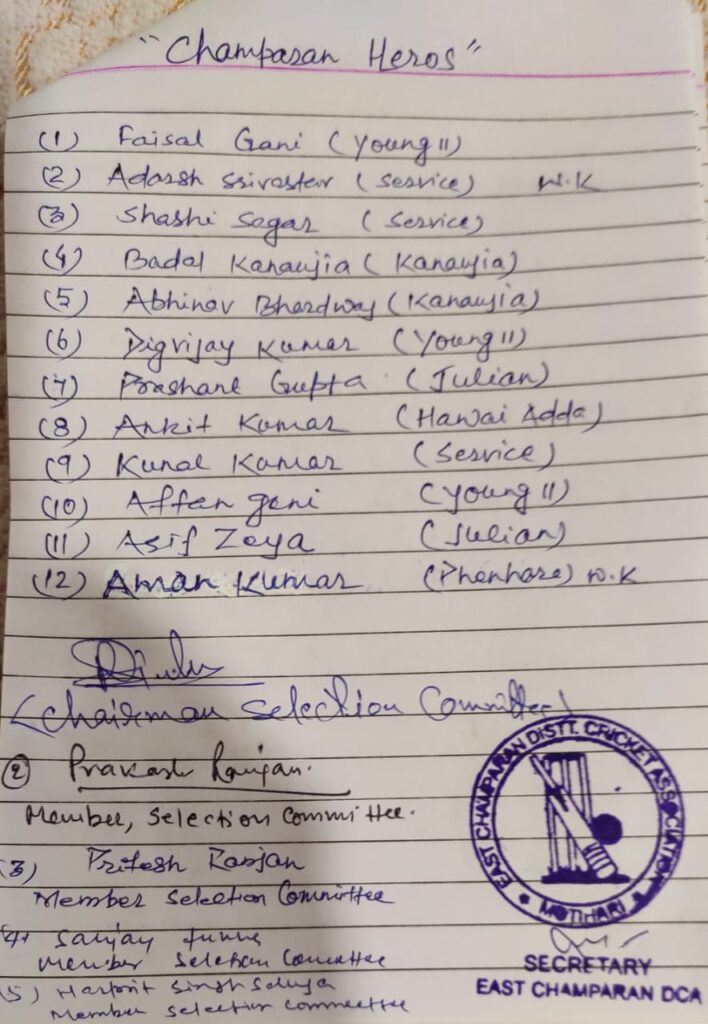 "Champaran Heros"
(1) Faisal Gani (Young 11)
(2) Adarsh Srivastav (Service) W.K
(3) Shashi Sagar (Service)
(4) Badal Kanaujia (Kanaujia)
(5) Abhinav Bhardwaj (Kanaujia)
(6) Digvijay Kumar (Young 11)
(7) Prashant Gupta (Julian)
(8) Ankit Kumar (Hawai Adda)
(9) Kunal Kumar (Service)
(10) Affan gani (Young 11)
(11) Asif Zoya (Julian)
(12) Aman Kumar (Phenhara) W.K
(Chairman Selection Committee)
(2) Prakash Ranjan.
Member, Selection Committee.
(3) Pritesh Ranjan
Member Selection Committee
(4) Sanjay
Member Selection Committee
(5) Harprit Singh
Member Selection Committee
EAST CHAMPARAN DISTT. CRICKET ASSOCIATION
MOTIHARI
SECRETARY
EAST CHAMPARAN DCA